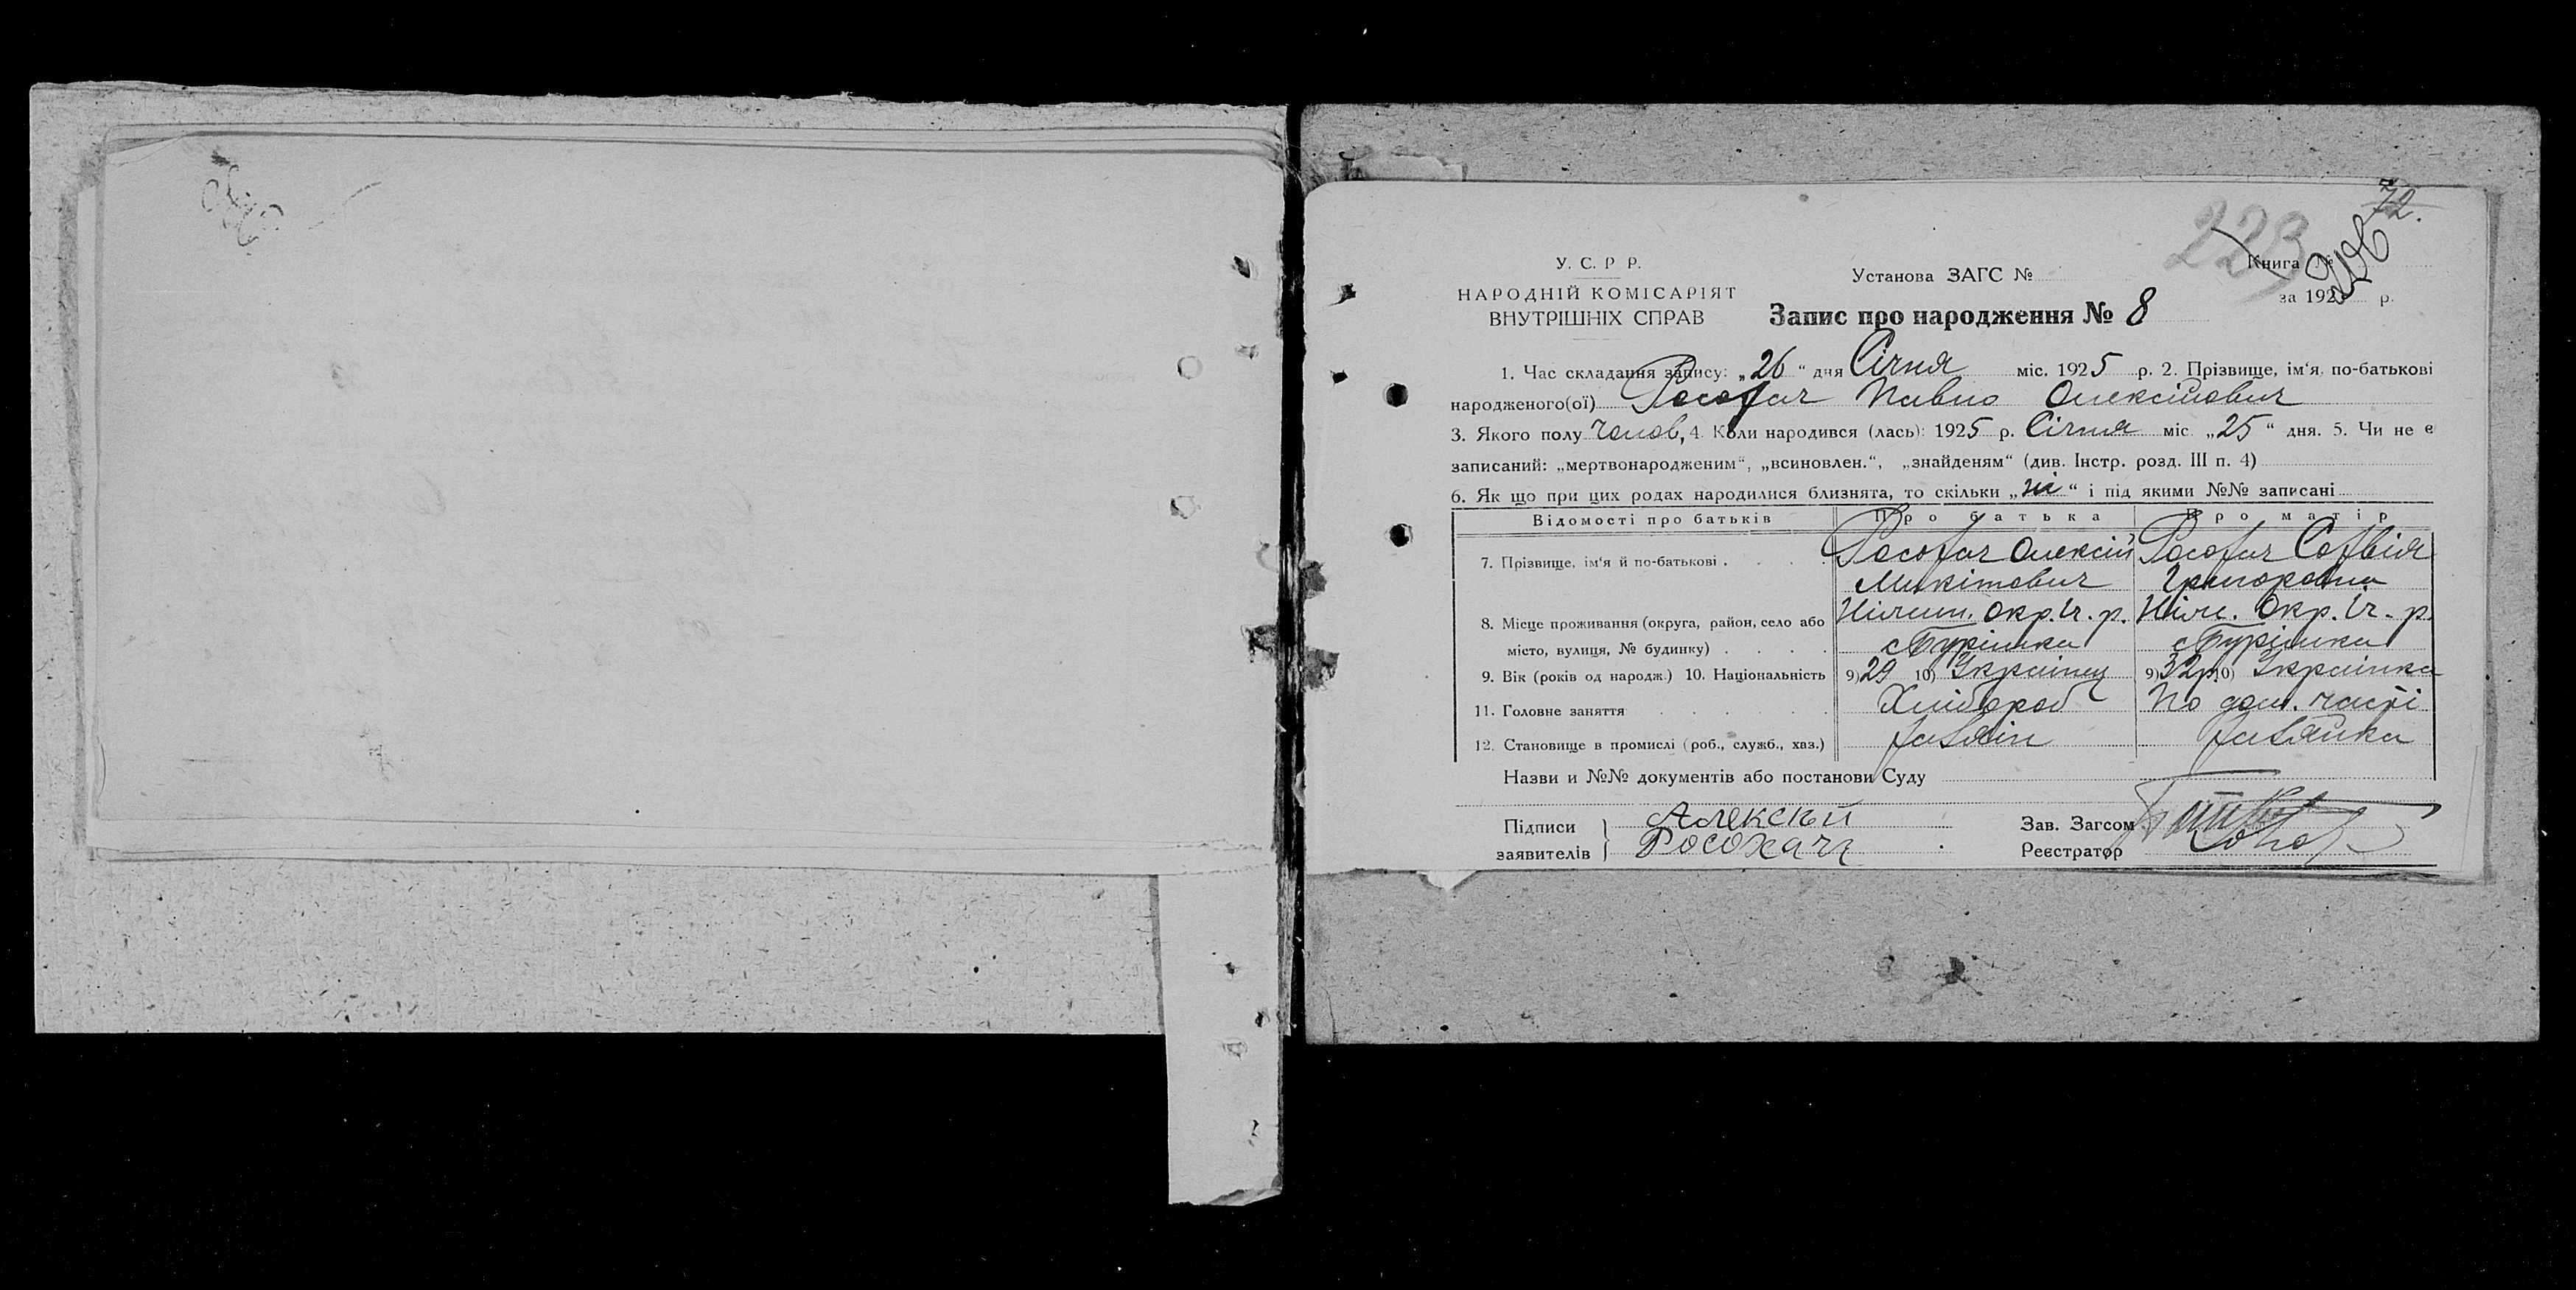 72.
223
У. С. Р Р.
НАРОДНІЙ КОМІСАРІЯТ
ВНУТРІШНІХ СПРАВ
Установа ЗАГС №
Книга №
за 192 р.
Запис про народження № 8
1. Час складання запису: „26“ дня Січня міс. 1925 р. 2. Прізвище, ім‘я, по-батькові
народженого(ої) Росохач Павло Олексійович
3. Якого полу Чолов, 4. Коли народився (лась): 1925 р. Січня міс. „25“ дня. 5. Чи не є
записаний: „мертвонародженим“, „всиновлен.“, „знайденям“ (див. Інстр. розд. III п. 4)
6. Як що при цих родах народилися близнята, то скільки „ні“ і під якими №№ записані
Відомості про батьків Про батька Про матір
7. Прізвище, ім‘я й по-батькові . . . . Росохач Олексій Росохач Софвія
Микітович Григоровна
8. Місце проживання (округа, район, село або Ніжин. Окр. Іч. р. Ніж. Окр. Іч. р.
місто, вулиця, № будинку) . . . . с Бурімка с Бурімка
9. Вік (років од народж.) 10. Національність 9) 29 10) Українец 9) 32р. 10) Українка
11. Головне заняття . . . . Хлібороб По дом. часті
12. Становище в промислі (роб., служб., хаз.) Хазяін Хазяйка
Назви и №№ документів або постанови Суду
Підписи Алексѣй
заявителів Росохачъ
Зав. Загсом
Реєстратор